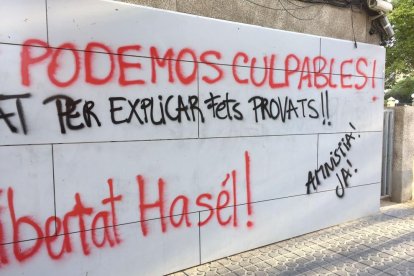 PODEMOS CULPABLES!
AT PER EXPLICAR FETS PROVATS!!
AMNISTIA!
JA!
libertat Hasél!